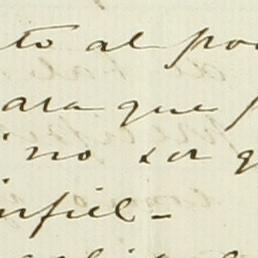 to al po
ara que
no ser q
infiel-